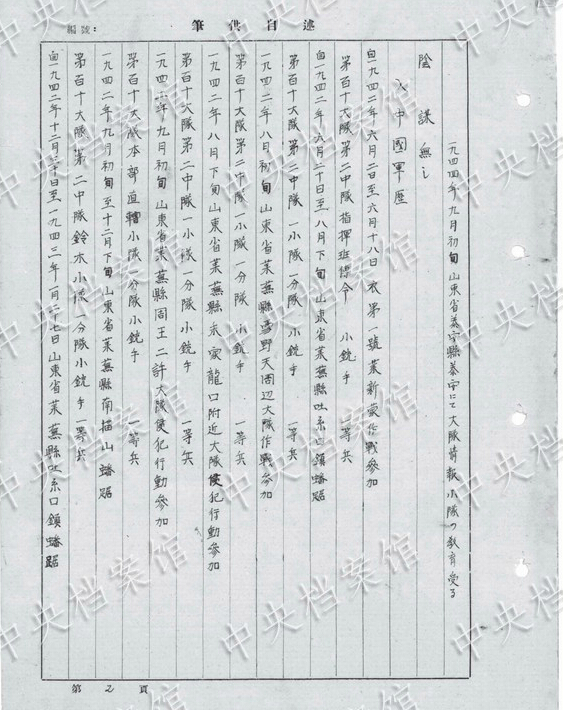 述自供筆
編號：
一九四四年九月初旬山東省泰安縣泰安にて大隊情報小隊の教育受る
陰謀 無シ
入中國軍歴
自一九四二年六月二日至六月十八日 衣第一號 萊新蒙作戰參加
第百十大隊第二中隊指揮班傳令 小銃手 一等兵
自一九四二年六月二十日至八月下旬山東省萊蕪縣吐糸口鎮蟠踞
第百十大隊第二中隊一小隊一分隊小銃手 一等兵
一九四二年八月初旬山東省萊蕪縣雪野天周辺大隊作戰參加
第百十大隊第二中隊一小隊一分隊小銃手 一等兵
一九四二年八月下旬山東省萊蕪縣 家龍口附近大隊侵犯行動參加
第百十大隊第二中隊一小隊一分隊小銃手 一等兵
一九四二年九月初旬山東省萊蕪縣周王二許大隊侵犯行動參加
第百十大隊本部直轄小隊一分隊小銃手 一等兵
一九四二年九月初旬至十二月下旬山東省萊蕪縣南 山蟠踞
第百十大隊第二中隊鈴木小隊一分隊小銃手 一等兵
自一九四二年十二月 十日至一九四三年一月二十七日山東省萊蕪縣吐糸口鎮蟠踞
第 2 頁
中央档案馆